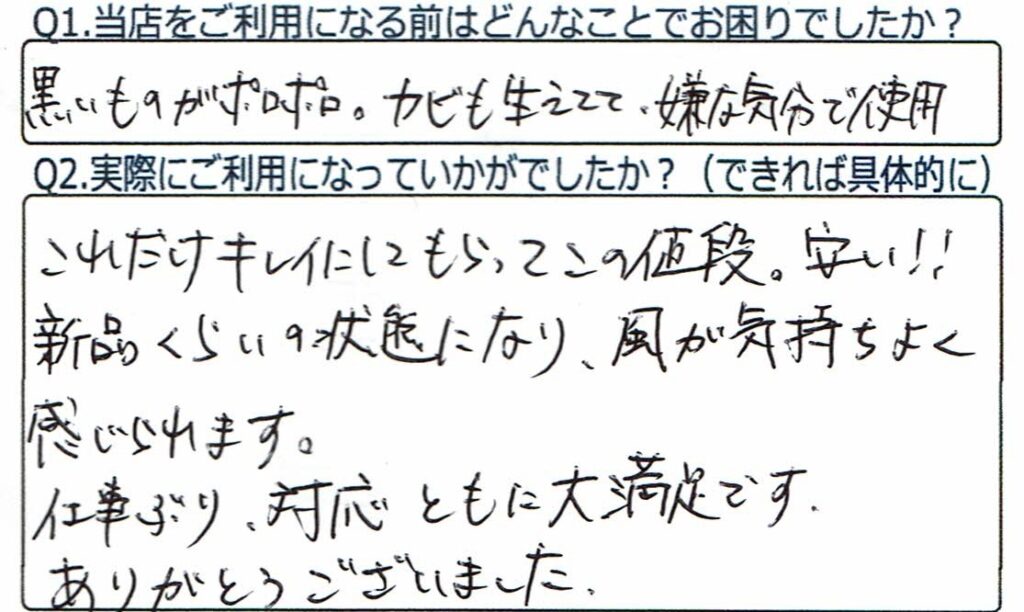 Q1.当店をご利用になる前はどんなことでお困りでしたか？
黒いものがポロポロ。カビも生えてて、嫌な気分で使用
Q2.実際にご利用になっていかがでしたか？（できれば具体的に）
これだけキレイにしてもらってこの値段。安い!!
新品くらいの状態になり、風が気持ちよく
感じられます。
仕事ぶり、対応ともに大満足です.
ありがとうございました.